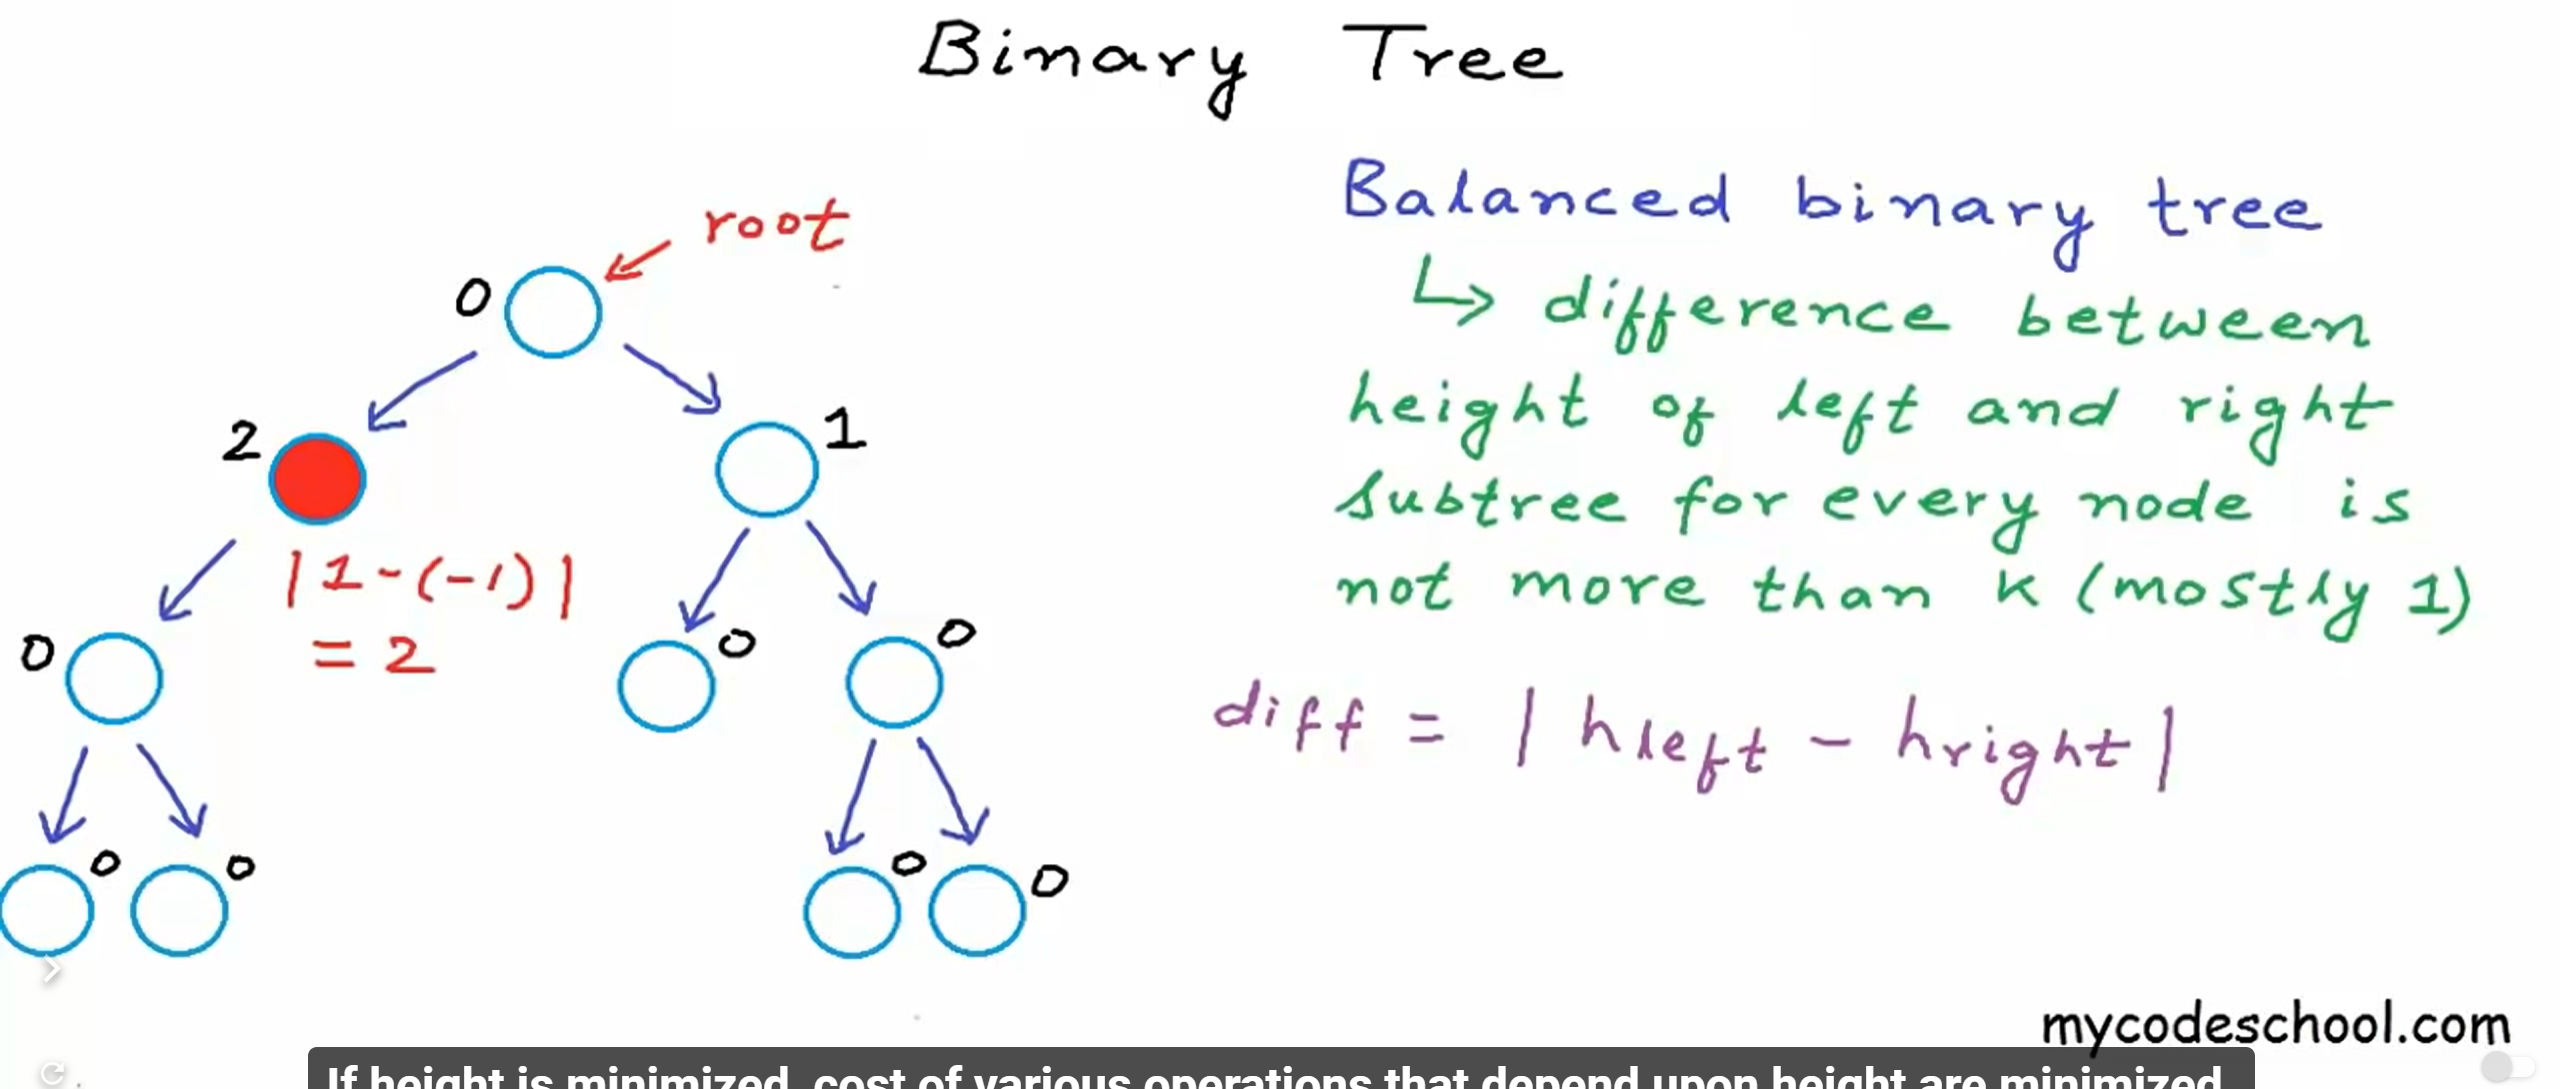 Binary Tree
root
0
2
1
|1-(-1)|
= 2
0
0
0
0
0
0
0
Balanced binary tree
↳ difference between
height of left and right
subtree for every node is
not more than k (mostly 1)
diff = | hleft - hright |
mycodeschool.com
If height is minimized, cost of various operations that depend upon height are minimized